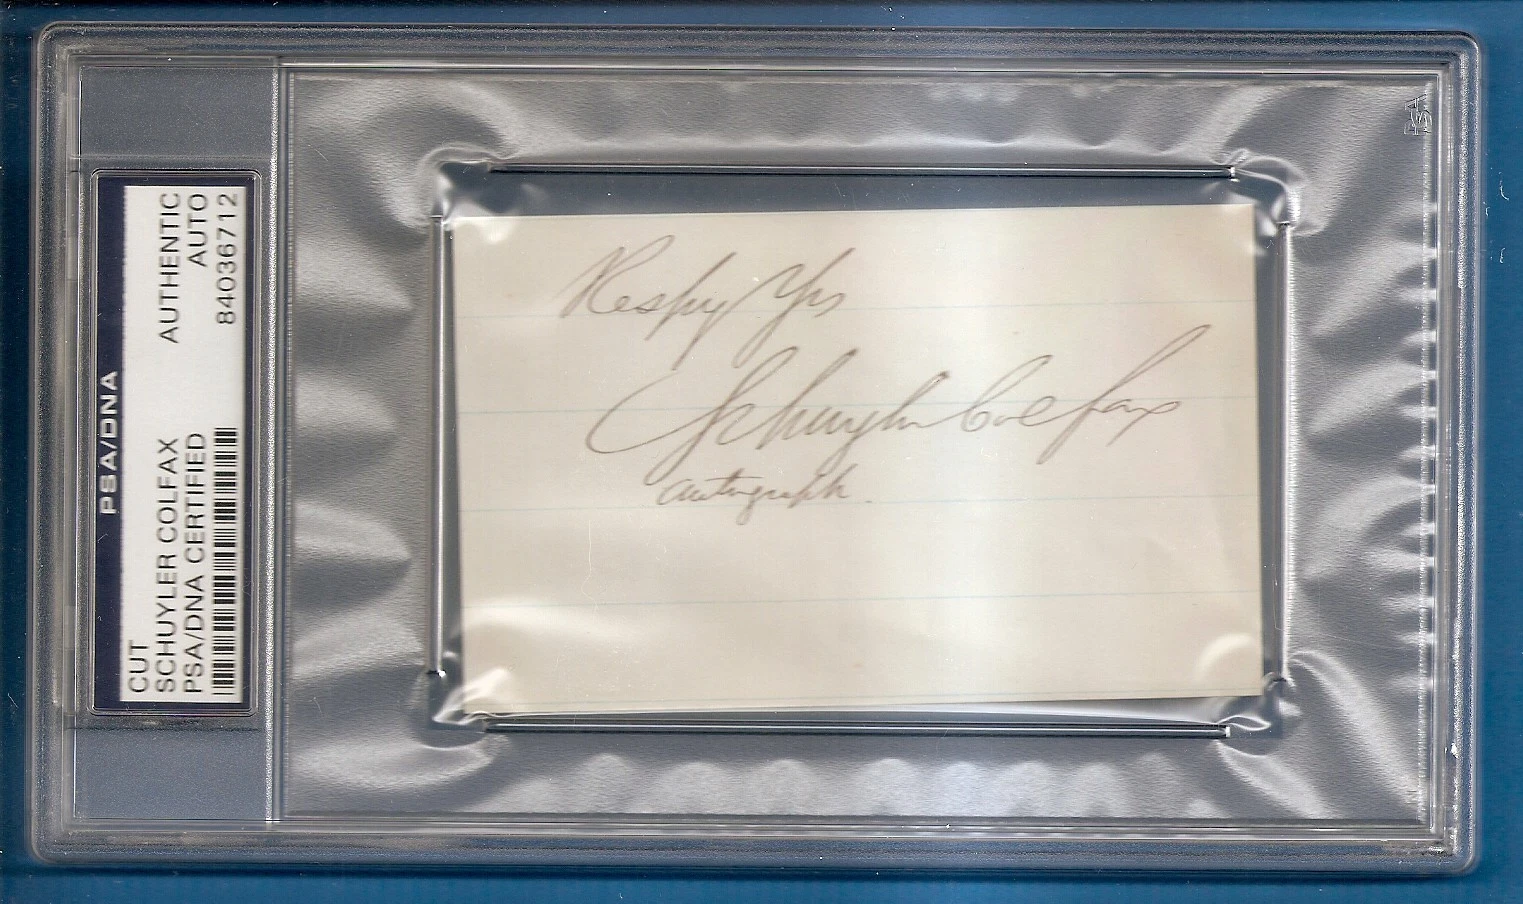 PSA/DNA
CUT
AUTHENTIC
SCHUYLER COLFAX
AUTO
PSA/DNA CERTIFIED
84036712
Respy Yrs
Schuyler Colfax
autograph.
PSA